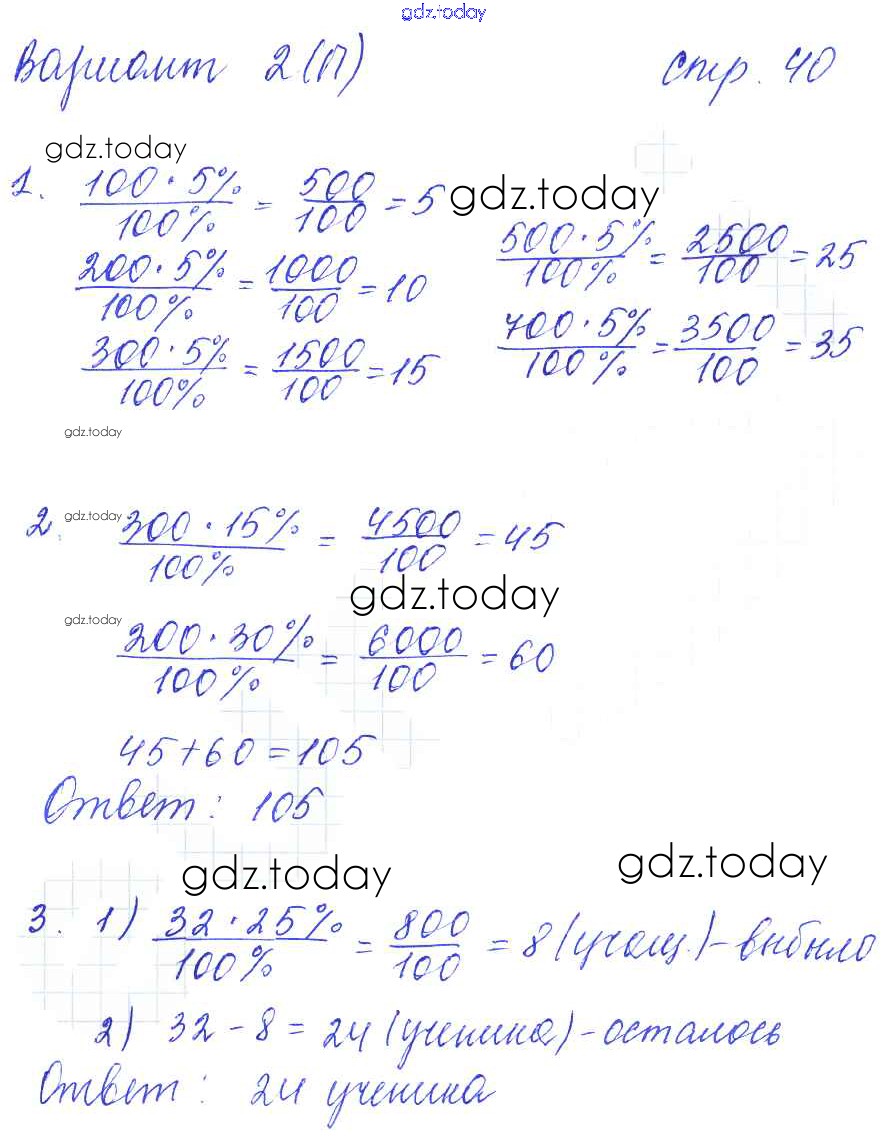 gdz.today
Вариант 2(П) стр. 40
gdz.today
1. 100·5%/100% = 500/100 = 5
gdz.today
200·5%/100% = 1000/100 = 10
300·5%/100% = 1500/100 = 15
500·5%/100% = 2500/100 = 25
700·5%/100% = 3500/100 = 35
gdz.today
2. gdz.today
300·15%/100% = 4500/100 = 45
gdz.today
gdz.today
200·30%/100% = 6000/100 = 60
45+60=105
Ответ: 105
gdz.today gdz.today
3. 1) 32·25%/100% = 800/100 = 8 (учащ.) - выбыло
2) 32-8=24 (ученика) - осталось
Ответ: 24 ученика